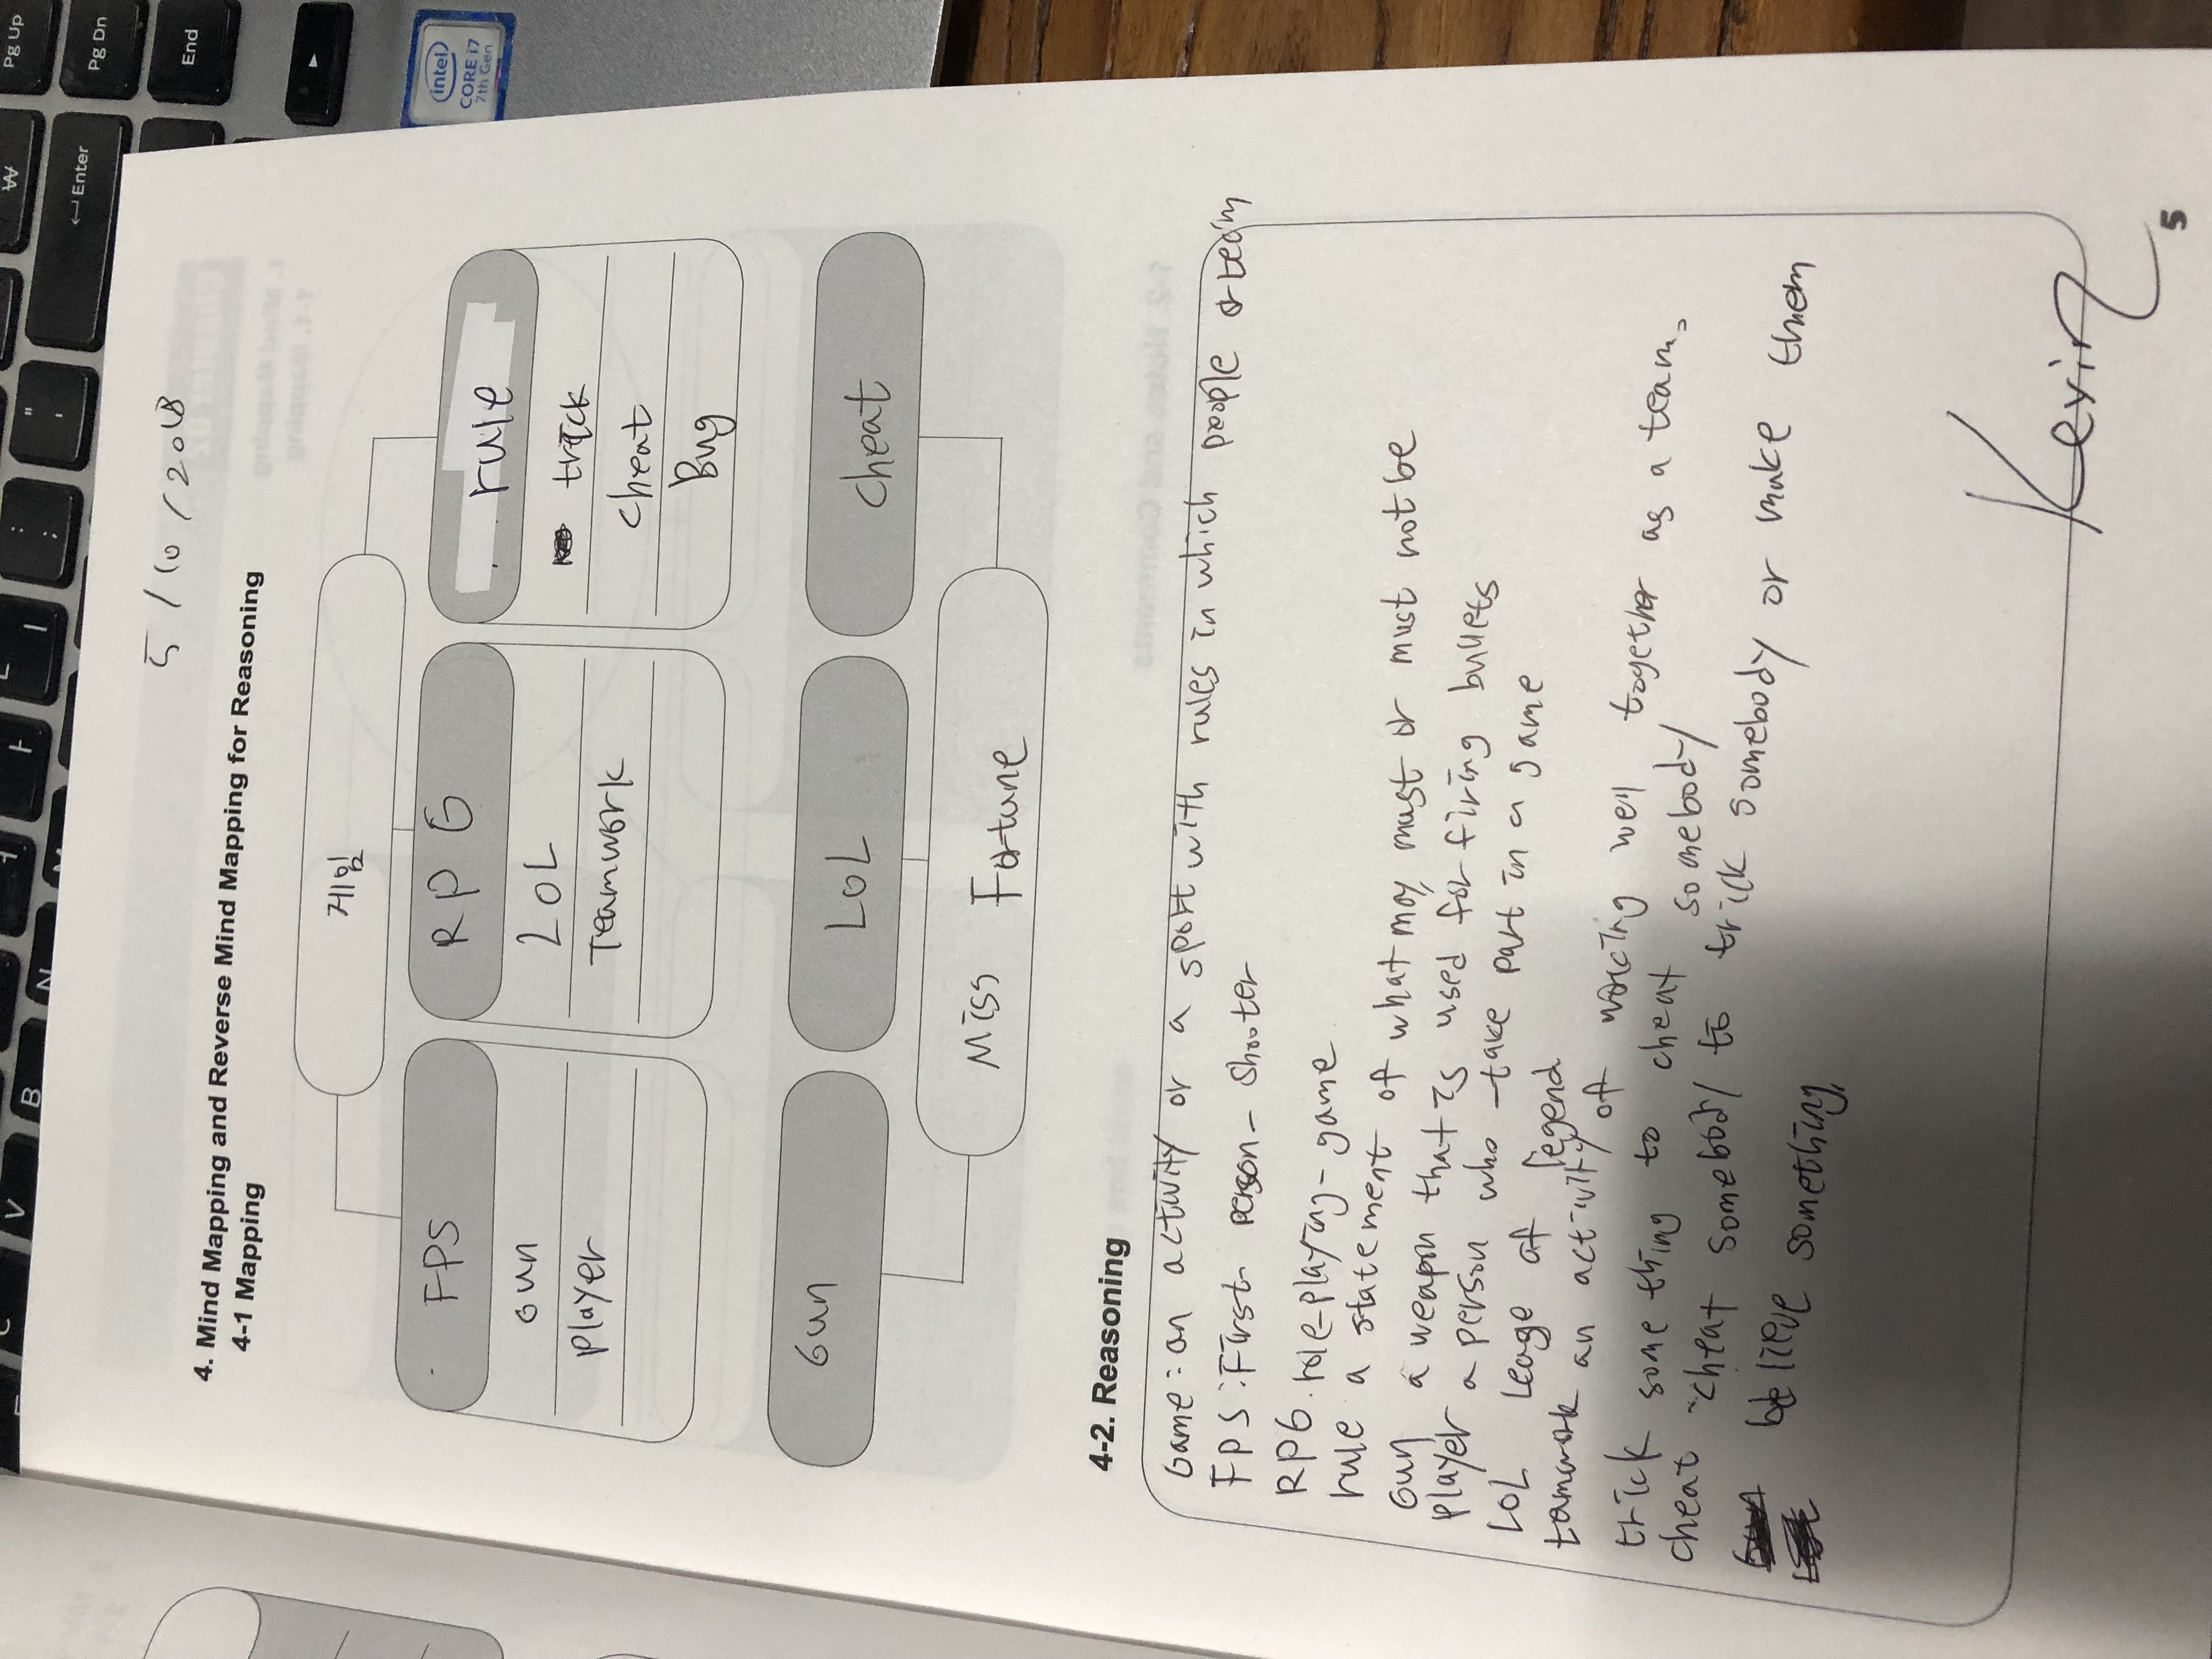 5/10/2018
4. Mind Mapping and Reverse Mind Mapping for Reasoning
4-1 Mapping
게임
FPS
RPG
rule
Gun
player
LOL
Teamwork
trick
cheat
Bug
Gun
LOL
cheat
Miss Fortune
4-2. Reasoning
Game: an activity or a sport with rules in which people or team
FPS: First-person-shooter
RPG. role-playing-game
rule a statement of what may must or must not be
Gun a weapon that is used for firing bullets
player a person who take part in a game
LOL Leage of legend
tamwork an activity of working well together as a team.
trick something to cheat somebody
cheat cheat somebody to trick somebody or make them
believe something.
Kevin
5
Pg Up
Pg Dn
End
Enter
W
intel
CORE i7
7th Gen
L
N
B
V
C